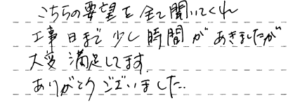 こちらの要望を全て聞いてくれ
工事日まで少し時間があきましたが
大変満足してます
ありがとうございました..